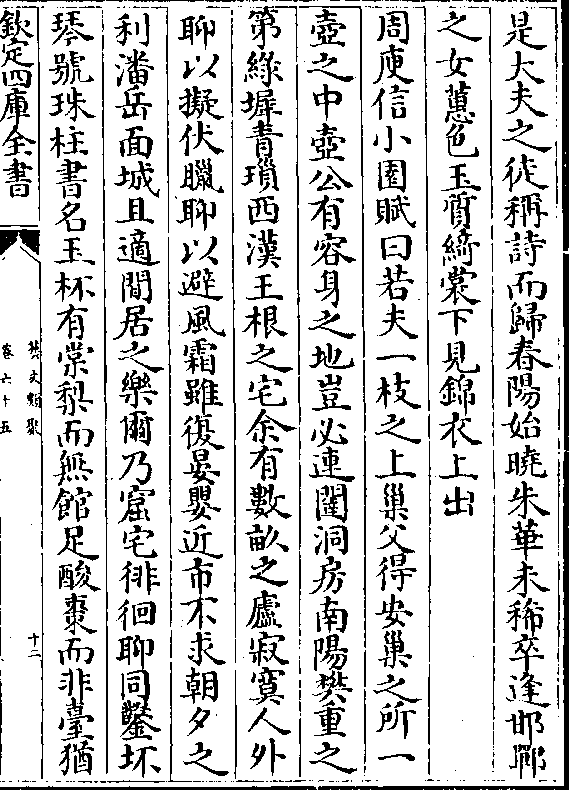 是大夫之徒稱詩而歸春陽始曉朱華未稀卒逢邯鄲
之女蕙色玉質綺裳下見錦衣上出
周庾信小園賦曰若夫一枝之上巢父得安巢之所一
壺之中壺公有容身之地豈必連闥洞房南陽樊重之
第綠墀青瑣西漢王根之宅余有數畝之廬寂寞人外
聊以擬伏臘聊以避風霜雖復晏嬰近市不求朝夕之
利潘岳面城且適閒居之樂爾乃窟宅徘徊聊同鑿坏
琴號珠柱書名玉杯有棠梨而無館足酸棗而非臺猶
欽定四庫全書
藝文類聚
卷六十五
十二